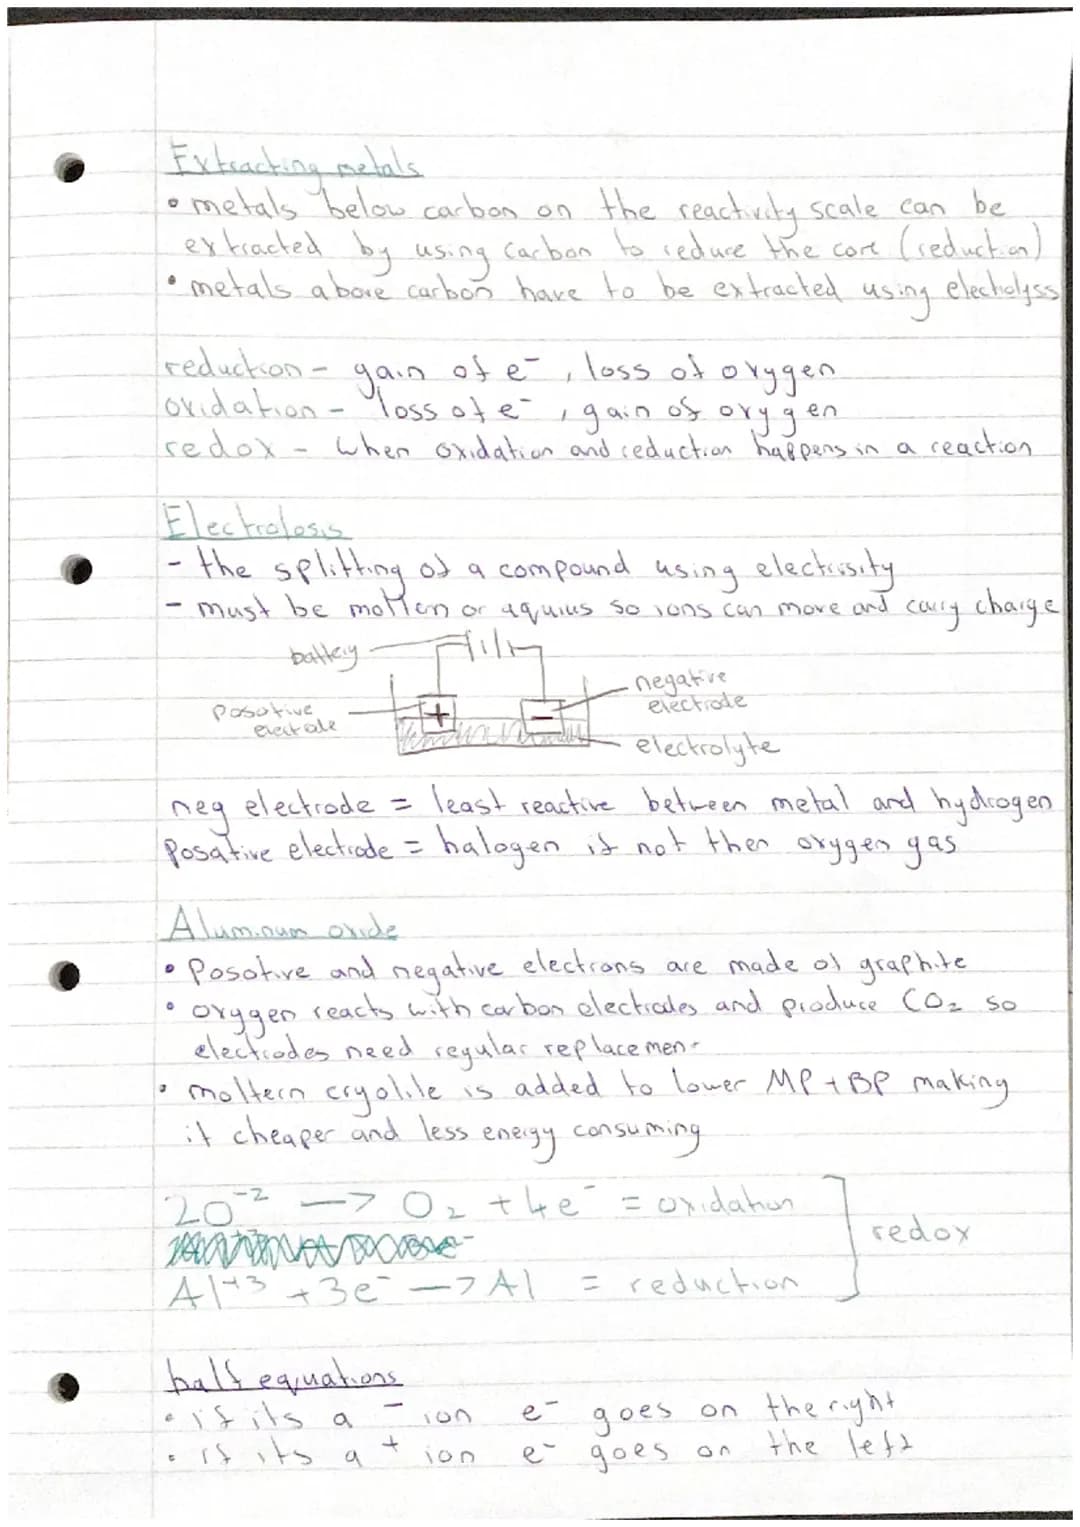 Extracting metals
• metals below carbon on the reactivity scale can be
extracted by using carbon to reduce the core (reduction)
• metals above carbon have to be extracted using electrolyss
reduction - gain of e⁻, loss of oxygen
oxidation - loss of e⁻, gain of oxygen
redox - when oxidation and reduction happens in a reaction
Electrolosis
- the splitting of a compound using electrisity
- must be moltern or aquius so ions can move and carry charge
battery
negative
electrode
posotive
electrode
+
−
electrolyte
neg electrode = least reactive between metal and hydrogen
Posative electrode = halogen if not then oxygen gas
Aluminum oxide
• Posotive and negative electrons are made of graphite
• oxygen reacts with carbon electrodes and produce CO₂ so
electrodes need regular replacement
• moltern cryolite is added to lower MP + BP making
it cheaper and less energy consuming
2O⁻² —> O₂ + 4e⁻ = oxidation
redox
Al⁺³ + 3e⁻ —> Al = reduction
half equations
• if its a − ion e⁻ goes on the right
• if its a + ion e⁻ goes on the left